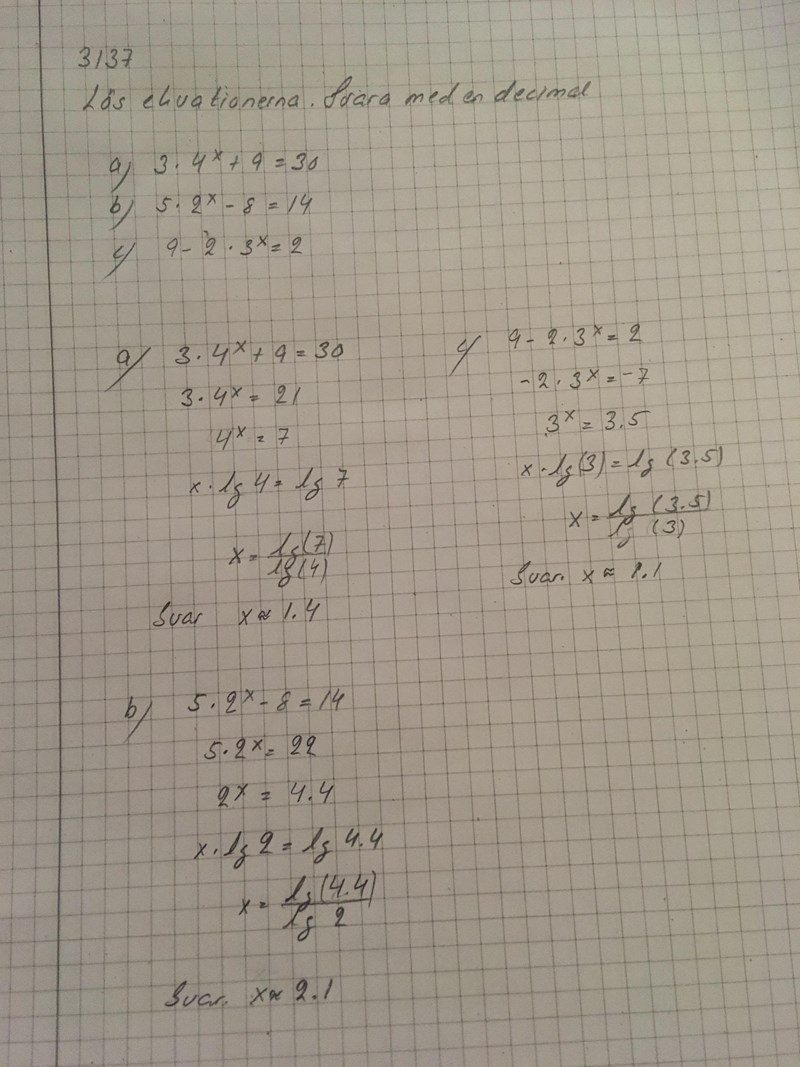 3137
Lös ekvationerna. Svara med en decimal
a) 3·4^x + 9 = 30
b) 5·2^x - 8 = 14
c) 9 - 2·3^x = 2
a) 3·4^x + 9 = 30
3·4^x = 21
4^x = 7
x·lg 4 = lg 7
x = lg(7) / lg(4)
Svar x ≈ 1.4
c) 9 - 2·3^x = 2
-2·3^x = -7
3^x = 3.5
x·lg(3) = lg (3.5)
x = lg (3.5) / lg (3)
Svar. x ≈ 1.1
b) 5·2^x - 8 = 14
5·2^x = 22
2^x = 4.4
x·lg 2 = lg 4.4
x = lg(4.4) / lg 2
Svar. x ≈ 2.1